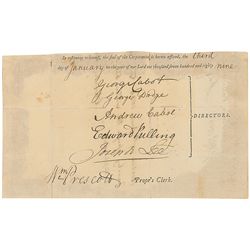 In testimony whereof, the seal of the Corporation is hereto affixed, the third
day of January in the year of our Lord one thousand seven hundred and eighty nine.
George Cabot
George Dodge
Andrew Cabot
Edward Pulling
Joseph Lee
DIRECTORS.
Wm Prescott Propr's Clerk.